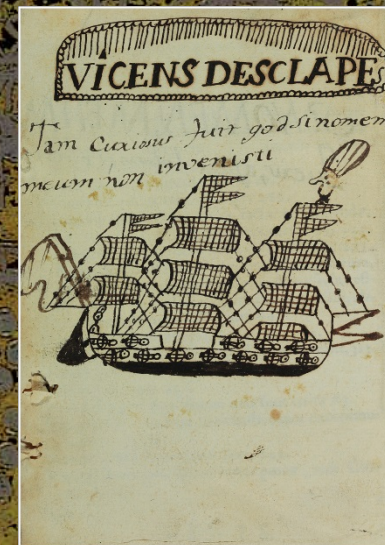 VICENS DESCLAPES
Tam curiosus fuit qod si nomen
meum non invenisti